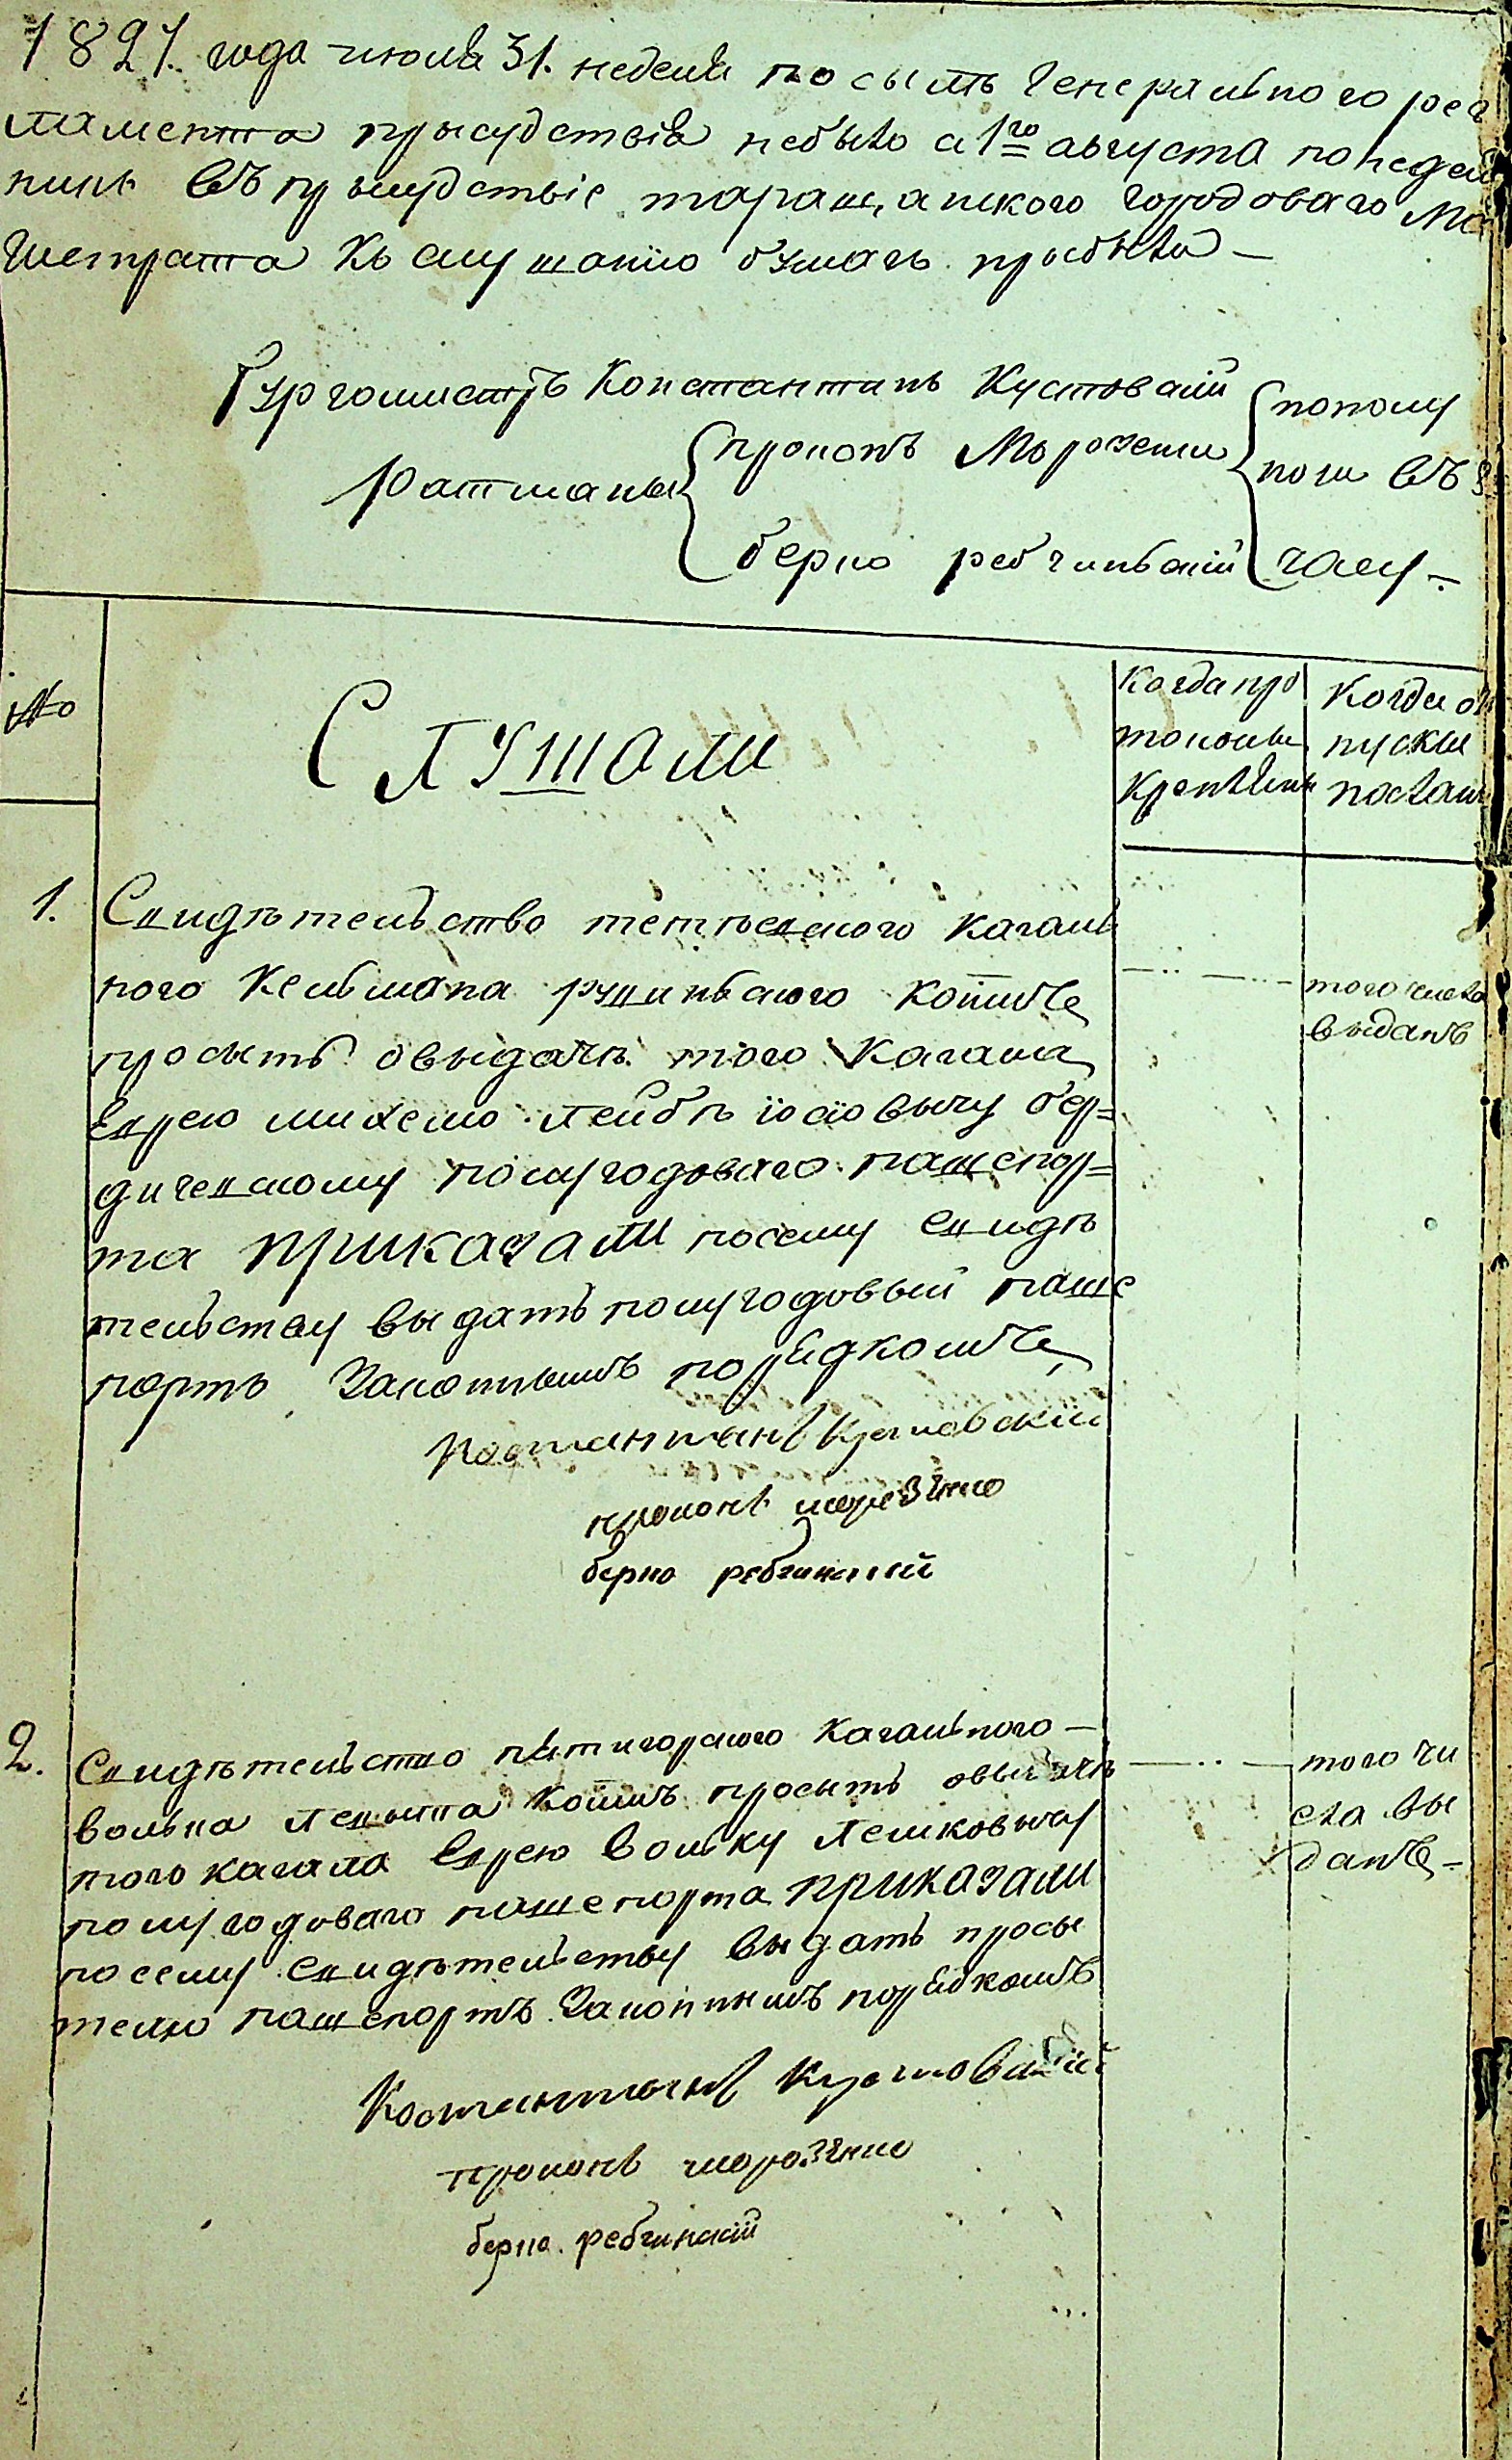 1821. года июля 31. неделя по сылѣ Генерального рег
ламента прысудствія небыло а 1го августа понедел
никъ въ прысудствіе таращанского городоваго Ма
гистрата Къ слушанію бумагъ прибыли —
Бургомистръ Константинъ Кустовскій
пополу
Ратманы
прокопъ Морозенко
ночи въ 8
берко ребчинский
часу —
№
Слушали
Когда про
токолы
Крепленны
Когда от
пуски
посланы
1.
Свидѣтельство тетіевского кагаль
ного Кельмана ружинского коимъ
просытъ овыдачѣ того Кагала
Еврею михелю лейбѣ іосіовычу бер=
дичевскому полугодоваго пашпор=
та приказали посему свидѣ
тельству выдать полугодовый паше
портъ Законнымъ порядкомъ
того числа
выданъ
Костантынъ Кустовскій
прокопъ морозенко
берко ребчинский
2.
Свидѣтельство пятигорского Кагального —
волька Левыта коимъ просытъ овыдачѣ
того кагала Еврею вольку Лешковычу
полугодоваго пашепорта приказали
посему свидѣтельству выдать просы
телю пашепортъ Законнымъ порядкомъ
того чи
сла вы
данъ —
Костантынъ Кустовскій
прокопъ морозенко
берко ребчинскій